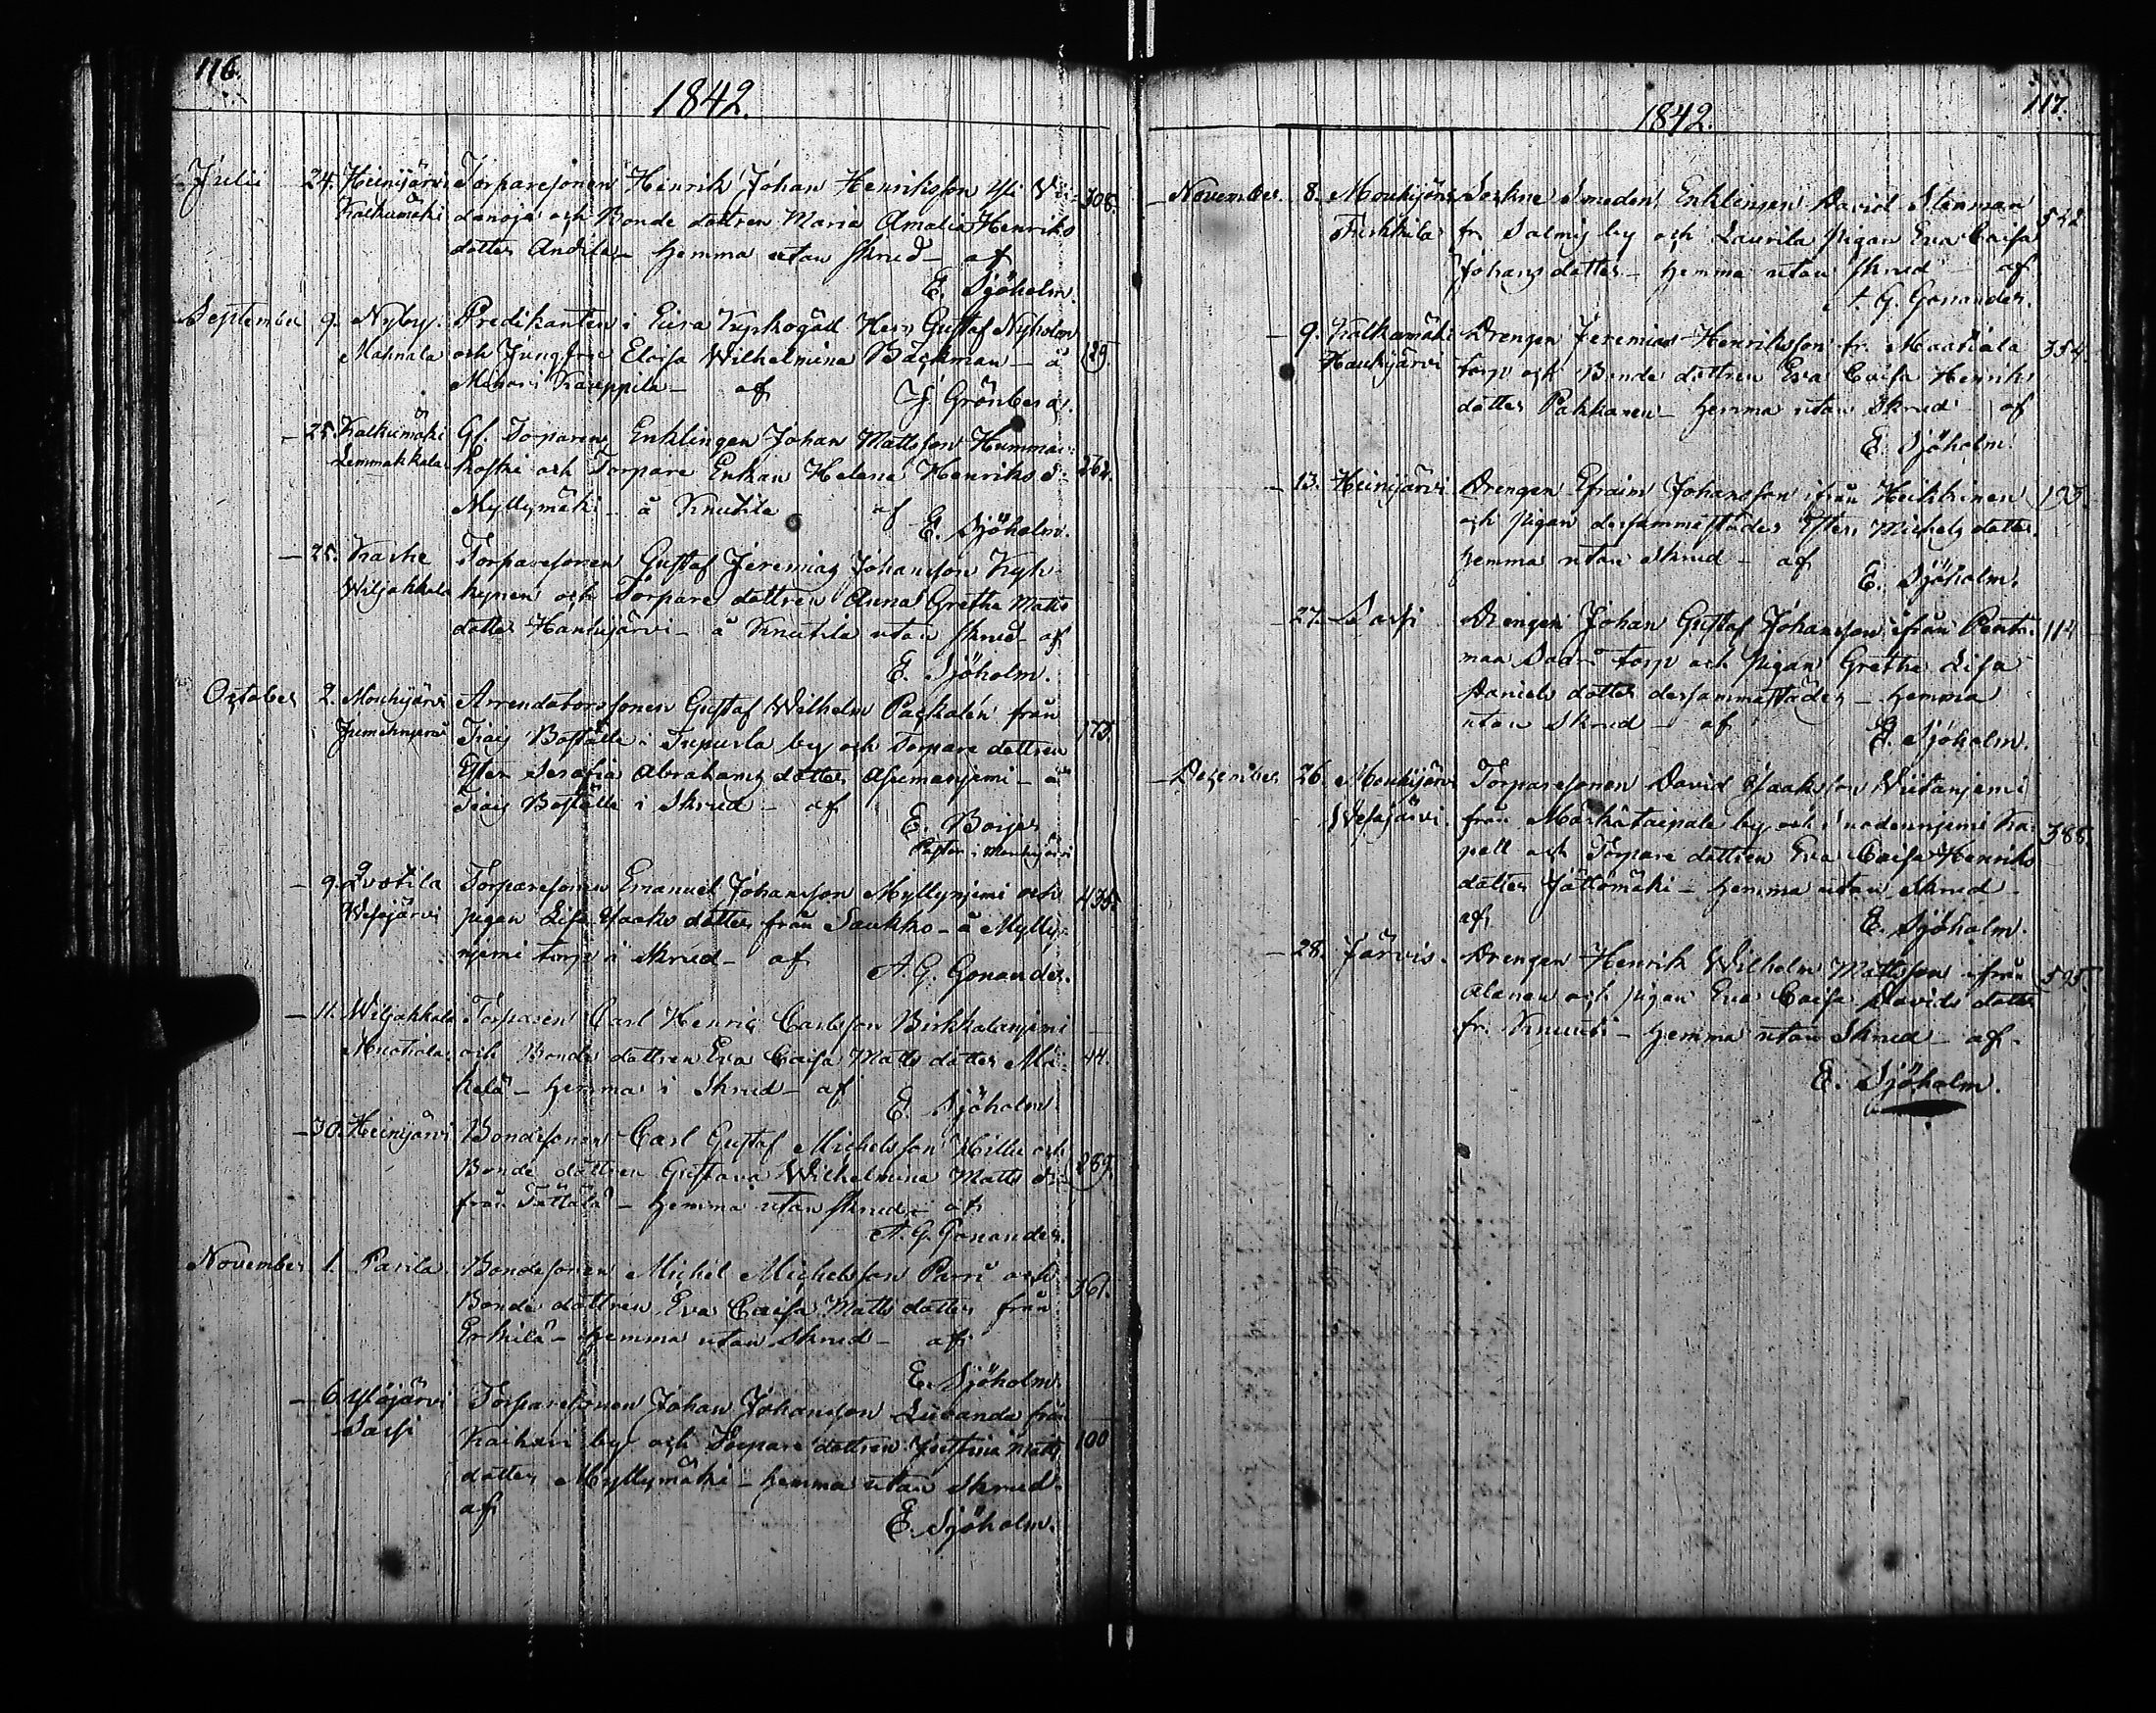 116.
1842.
Julii 24. Heinijärvi Torparesonen Henrik Johan Henriksson Yli Vä- 308.
Kalkumäki danoja och Bonde dottren Maria Amalia Henriks
dotter Andila - hemma utan skrud - af
E. Sjöholm.
September 9. Nyby. Predikanten i Eura Kyrkogäll Herr Gustaf Nyholm
Mahnala och Jungfru Eloisa Wilhelmina Bäckman - å 129.
Kauppila - af J. Grönberg.
- 25. Kalkumäki Gl. Torparen Enklingen Johan Mattsson Humma-
Lemmakkala koski och Torpare Enkan Helena Henriks d. 262.
Myllymäki - å Knutila af E. Sjöholm.
- 25. Kaske Torparesonen Gustaf Jeremias Johansson Kyh-
Wiljakkala kynen och Torpare dottren Anna Gretha Matts
dotter Haukijärvi - å Knutila utan skrud af
E. Sjöholm.
October 2. Mouhijärvi Arrendatorssonen Gustaf Wilhelm Packalén från
Boställe i Tupurla by och Torpare dottren 173.
Ester Serafia Abrahams dotter - å
Boställe i Skrud - af
E. Boijer
Pastor i Mouhijärvi
- 9. Qvotila Torparesonen Emanuel Johansson Myllyniemi och 435.
Wesajärvi pigan Lisa Isaaks dotter från Saukko - å Mylly-
niemi torp i skrud - af
A. G. Gonander.
- 11. Wiljakkala Torparen Carl Henric Carlsson Birkkalaniemi
Muotiala och Bonde dottren Eva Caisa Matts dotter Mä- 44.
kelä - hemma i Skrud - af
E. Sjöholm.
- 30. Heinijärvi Bondesonen Carl Gustaf Michelsson Hillu och
Bonde dottren Gustava Wilhelmina Matts dr. 289.
från Tättälä - hemma utan skrud - af
A. G. Gonander.
November 1. Parila Bondesonen Michel Michelsson Parri och
Bonde dottren Eva Caisa Matts dotter från 361.
Erkilä - hemma utan skrud - af
E. Sjöholm.
- 6. Ylöjärvi Torparesonen Johan Johansson Liuanda från
Sassi Kaikari by och Torpare dottren Justina Matts 100
dotter Myllymäki - hemma utan Skrud.
af
E. Sjöholm.
117.
1842.
November 8. Mouhijärvi Sockne Smeden, Enklingen David Stenman 542
Tuskkila fr. Salmis by och Laurila pigan Eva Caisa
Johans dotter - hemma utan skrud - af
A. G. Gonander.
- 9. Kalkumäki Drengen Jeremias Henriksson fr. Maatiala 354
Haukijärvi torp och Bonde dottren Eva Caisa Henriks
dotter Pakkanen - hemma utan Skrud af
E. Sjöholm.
- 13. Heinijärvi Drengen Efraim Johansson ifrån Heikkinen 193.
och pigan dersammastädes Ester Michels dotter
hemma utan skrud - af
E. Sjöholm.
- 27. Sassi Drengen Johan Gustaf Johansson ifrån Pent- 114
maa torp och pigan Gretha Lisa
Daniels dotter dersammastädes - hemma
utan skrud - af
E. Sjöholm.
December 26. Mouhijärvi Torparesonen David Isaaksson Wiitaniemi
Wesajärvi. från Märkätaipale by och Suodenniemi Ka- 388.
pell och Torpare dottren Eva Caisa Henriks
dotter Jättömäki - hemma utan Skrud -
af
E. Sjöholm.
- 28. Järvis. Drengen Henrik Wilhelm Mattsson ifrån 595.
Alanen och pigan Eva Caisa Davids dotter
fr. Knuuti - hemma utan Skrud - af -
E. Sjöholm.